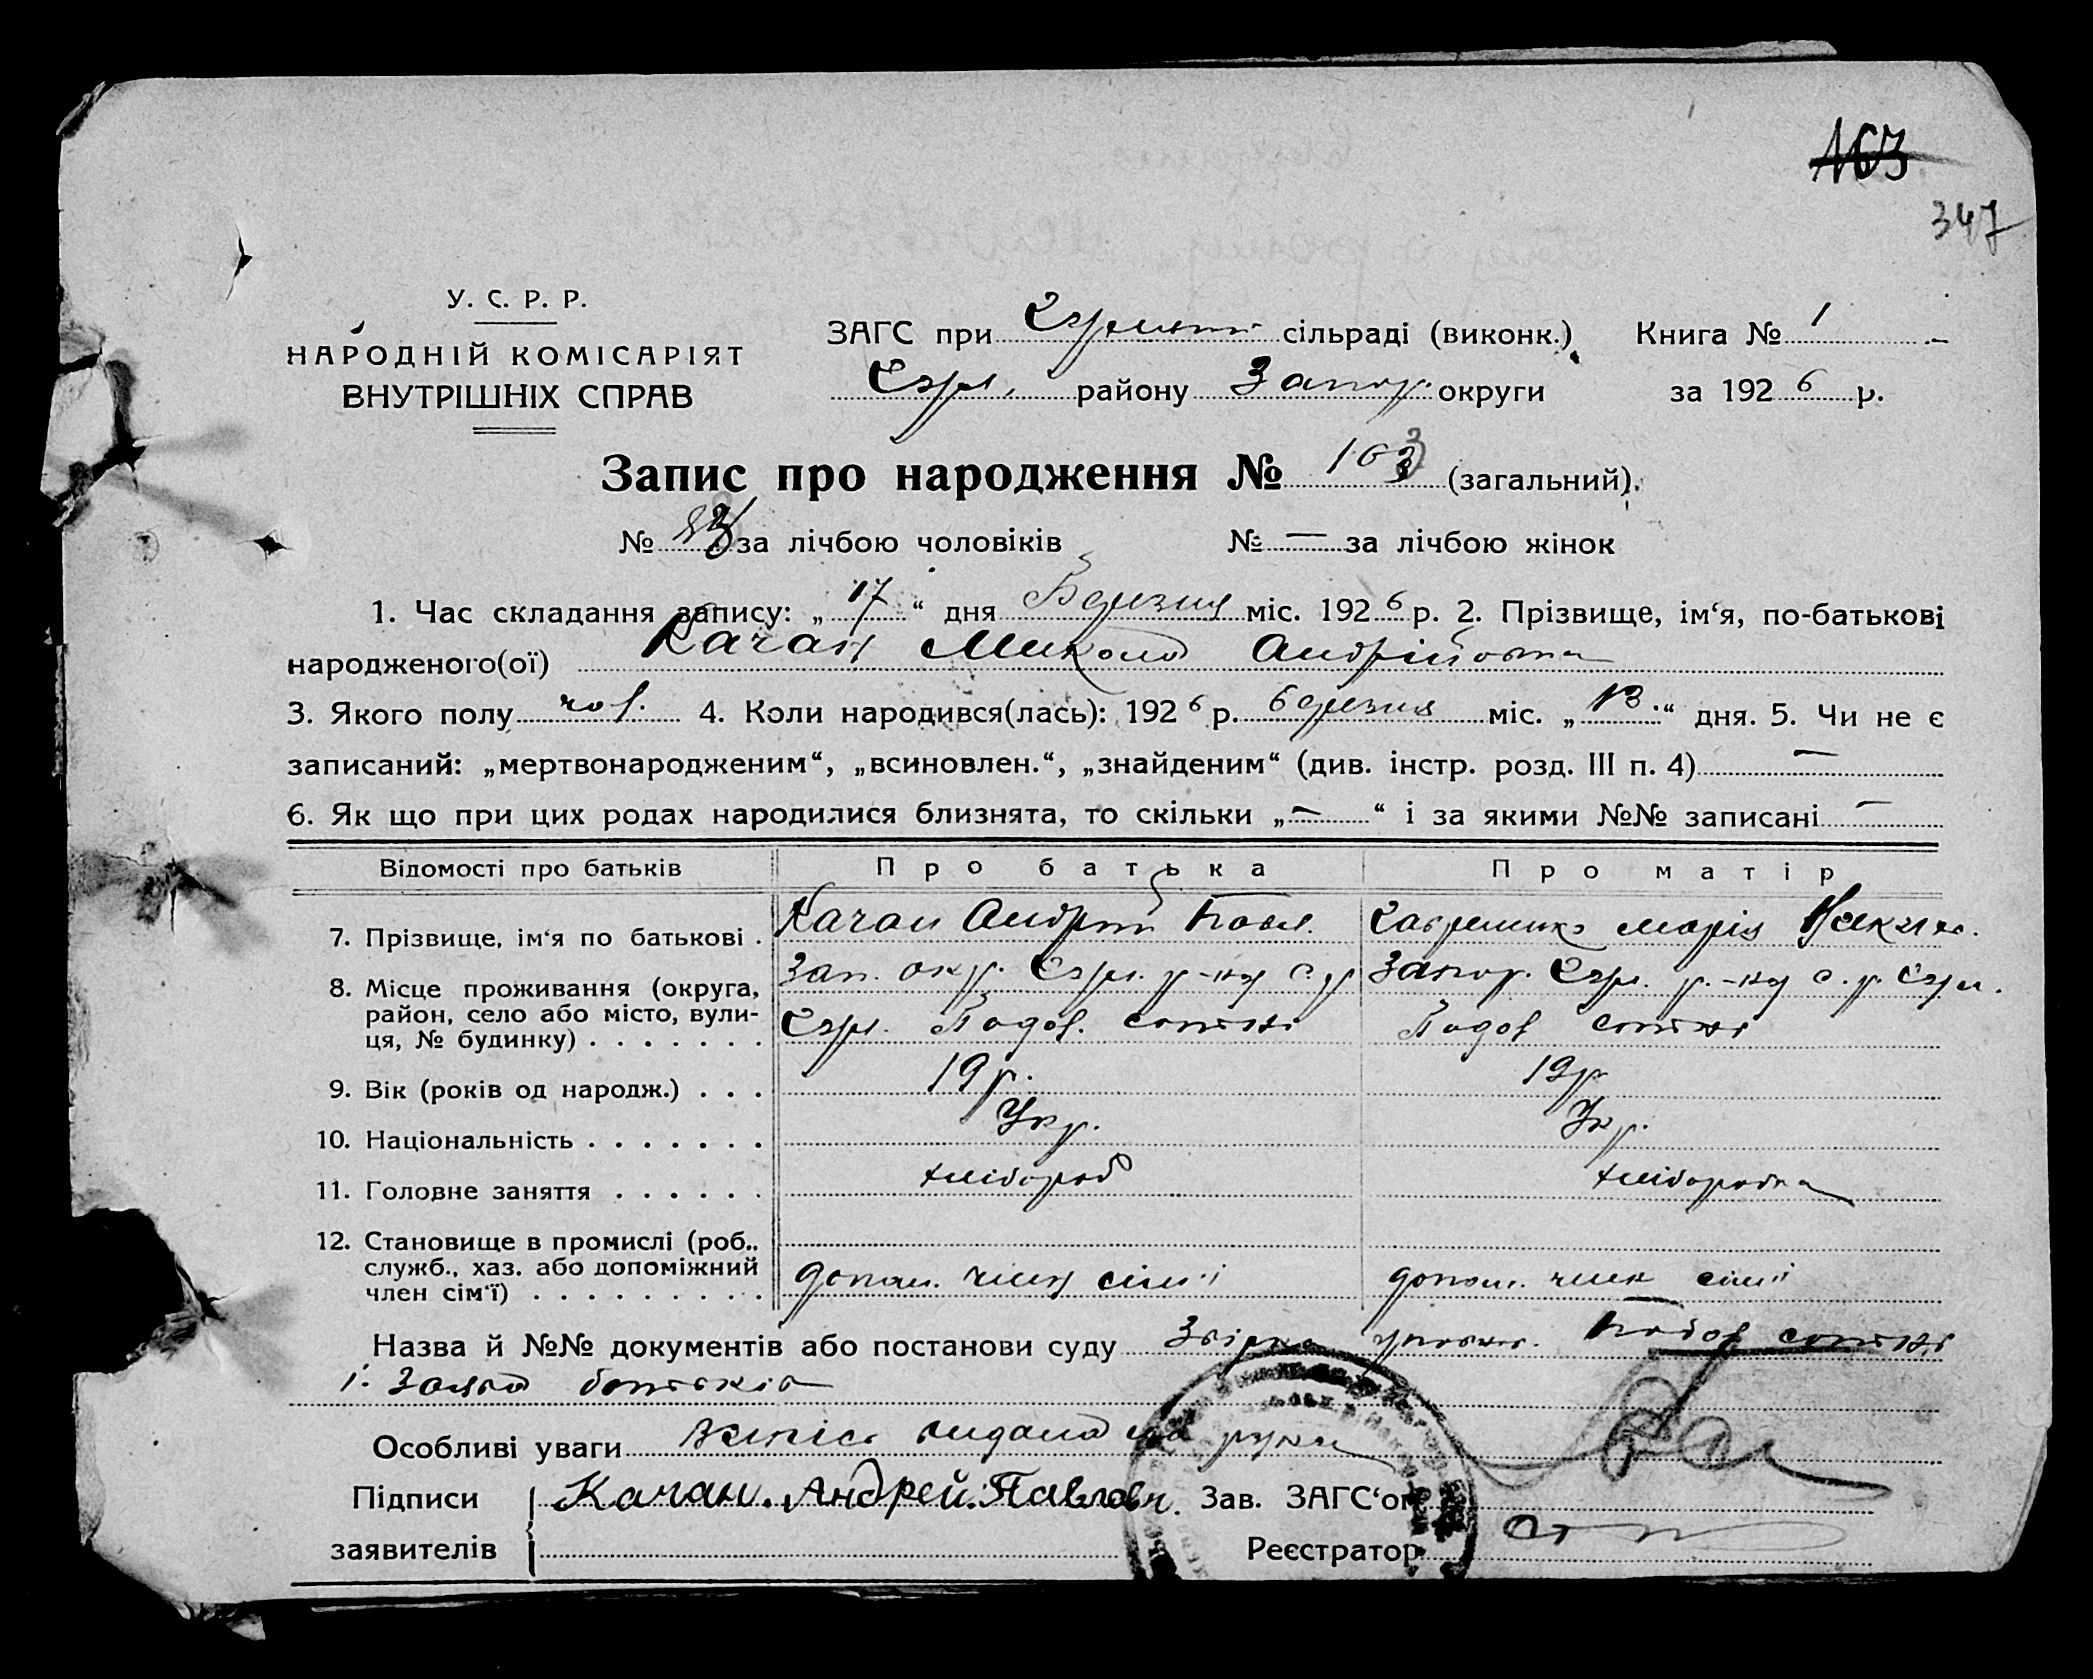 163
347
У. С. Р. Р.
НАРОДНІЙ КОМІСАРІЯТ
ВНУТРІШНІХ СПРАВ
ЗАГС при сільраді (виконк.) Книга № 1
району Запор. округи за 1926 р.
Запис про народження № 163 (загальний).
№ 83 за лічбою чоловіків № — за лічбою жінок
1. Час складання запису: „17“ дня Березня міс. 1926 р. 2. Прізвище, ім‘я, по-батькові
народженого(ої) Качан Микола Андрійович
3. Якого полу чол. 4. Коли народився(лась): 1926 р. березня міс. „13“ дня. 5. Чи не є
записаний: „мертвонародженим“, „всиновлен.“, „знайденим“ (див. інстр. розд. III п. 4) —
6. Як що при цих родах народилися близнята, то скільки „—“ і за якими №№ записані —
Відомості про батьків Про батька Про матір
7. Прізвище, ім‘я по батькові . Качан Андрій Павл. Гавриленко Марія
8. Місце проживання (округа, Зап. окр. р-ну с. р. Запор. р.-ну с. р.
район, село або місто, вули- сотня сотня
ця, № будинку) . . . . . . .
9. Вік (років од народж.) . . . 19 р. 19 р
10. Національність . . . . . . . Укр. Укр.
11. Головне заняття . . . . . . хлібороб хліборобка
12. Становище в промислі (роб..
служб., хаз. або допоміжний допом. член сім'ї допом. член сім'ї
член сім‘ї) . . . . . . . . . .
Назва й №№ документів або постанови суду сотні
і. Заява батьків
Особливі уваги видана на руки
Підписи Качан. Андрей. Павлович. Зав. ЗАГС‘ом
заявителів Реєстратор